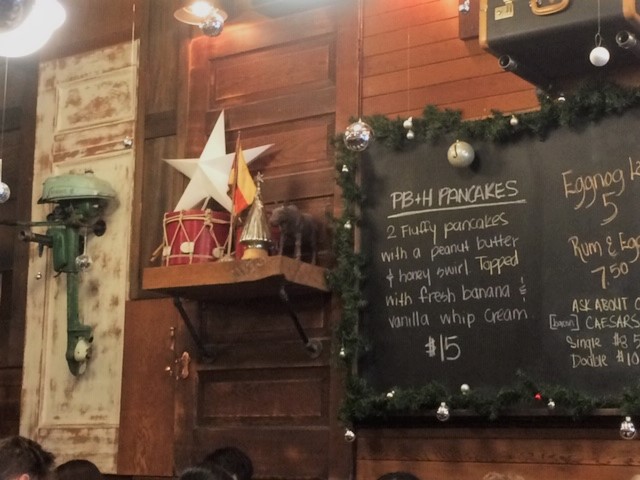 PB+H PANCAKES
2 Fluffy pancakes
with a peanut butter
& honey swirl Topped
with fresh banana &
vanilla whip cream
$15
Eggnog
5
Rum & Egg
7.50
ASK ABOUT
[bacon] CAESARS
Single $8.5
Double $10